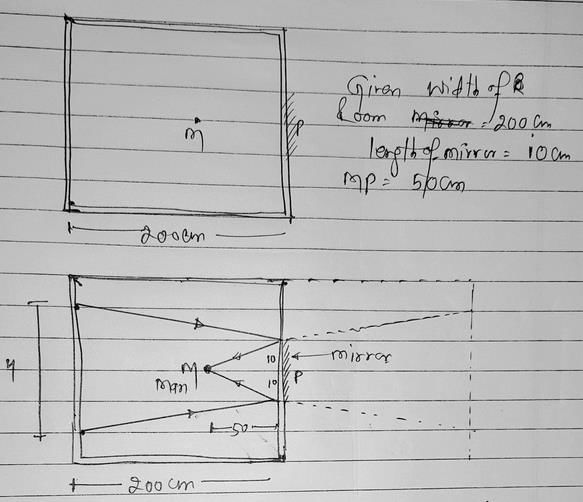 Given Width of
Room = 200 cm
length of mirror = 10 cm
MP = 50cm
M
P
200cm
M
man
10
10
P
mirror
y
50
200 cm